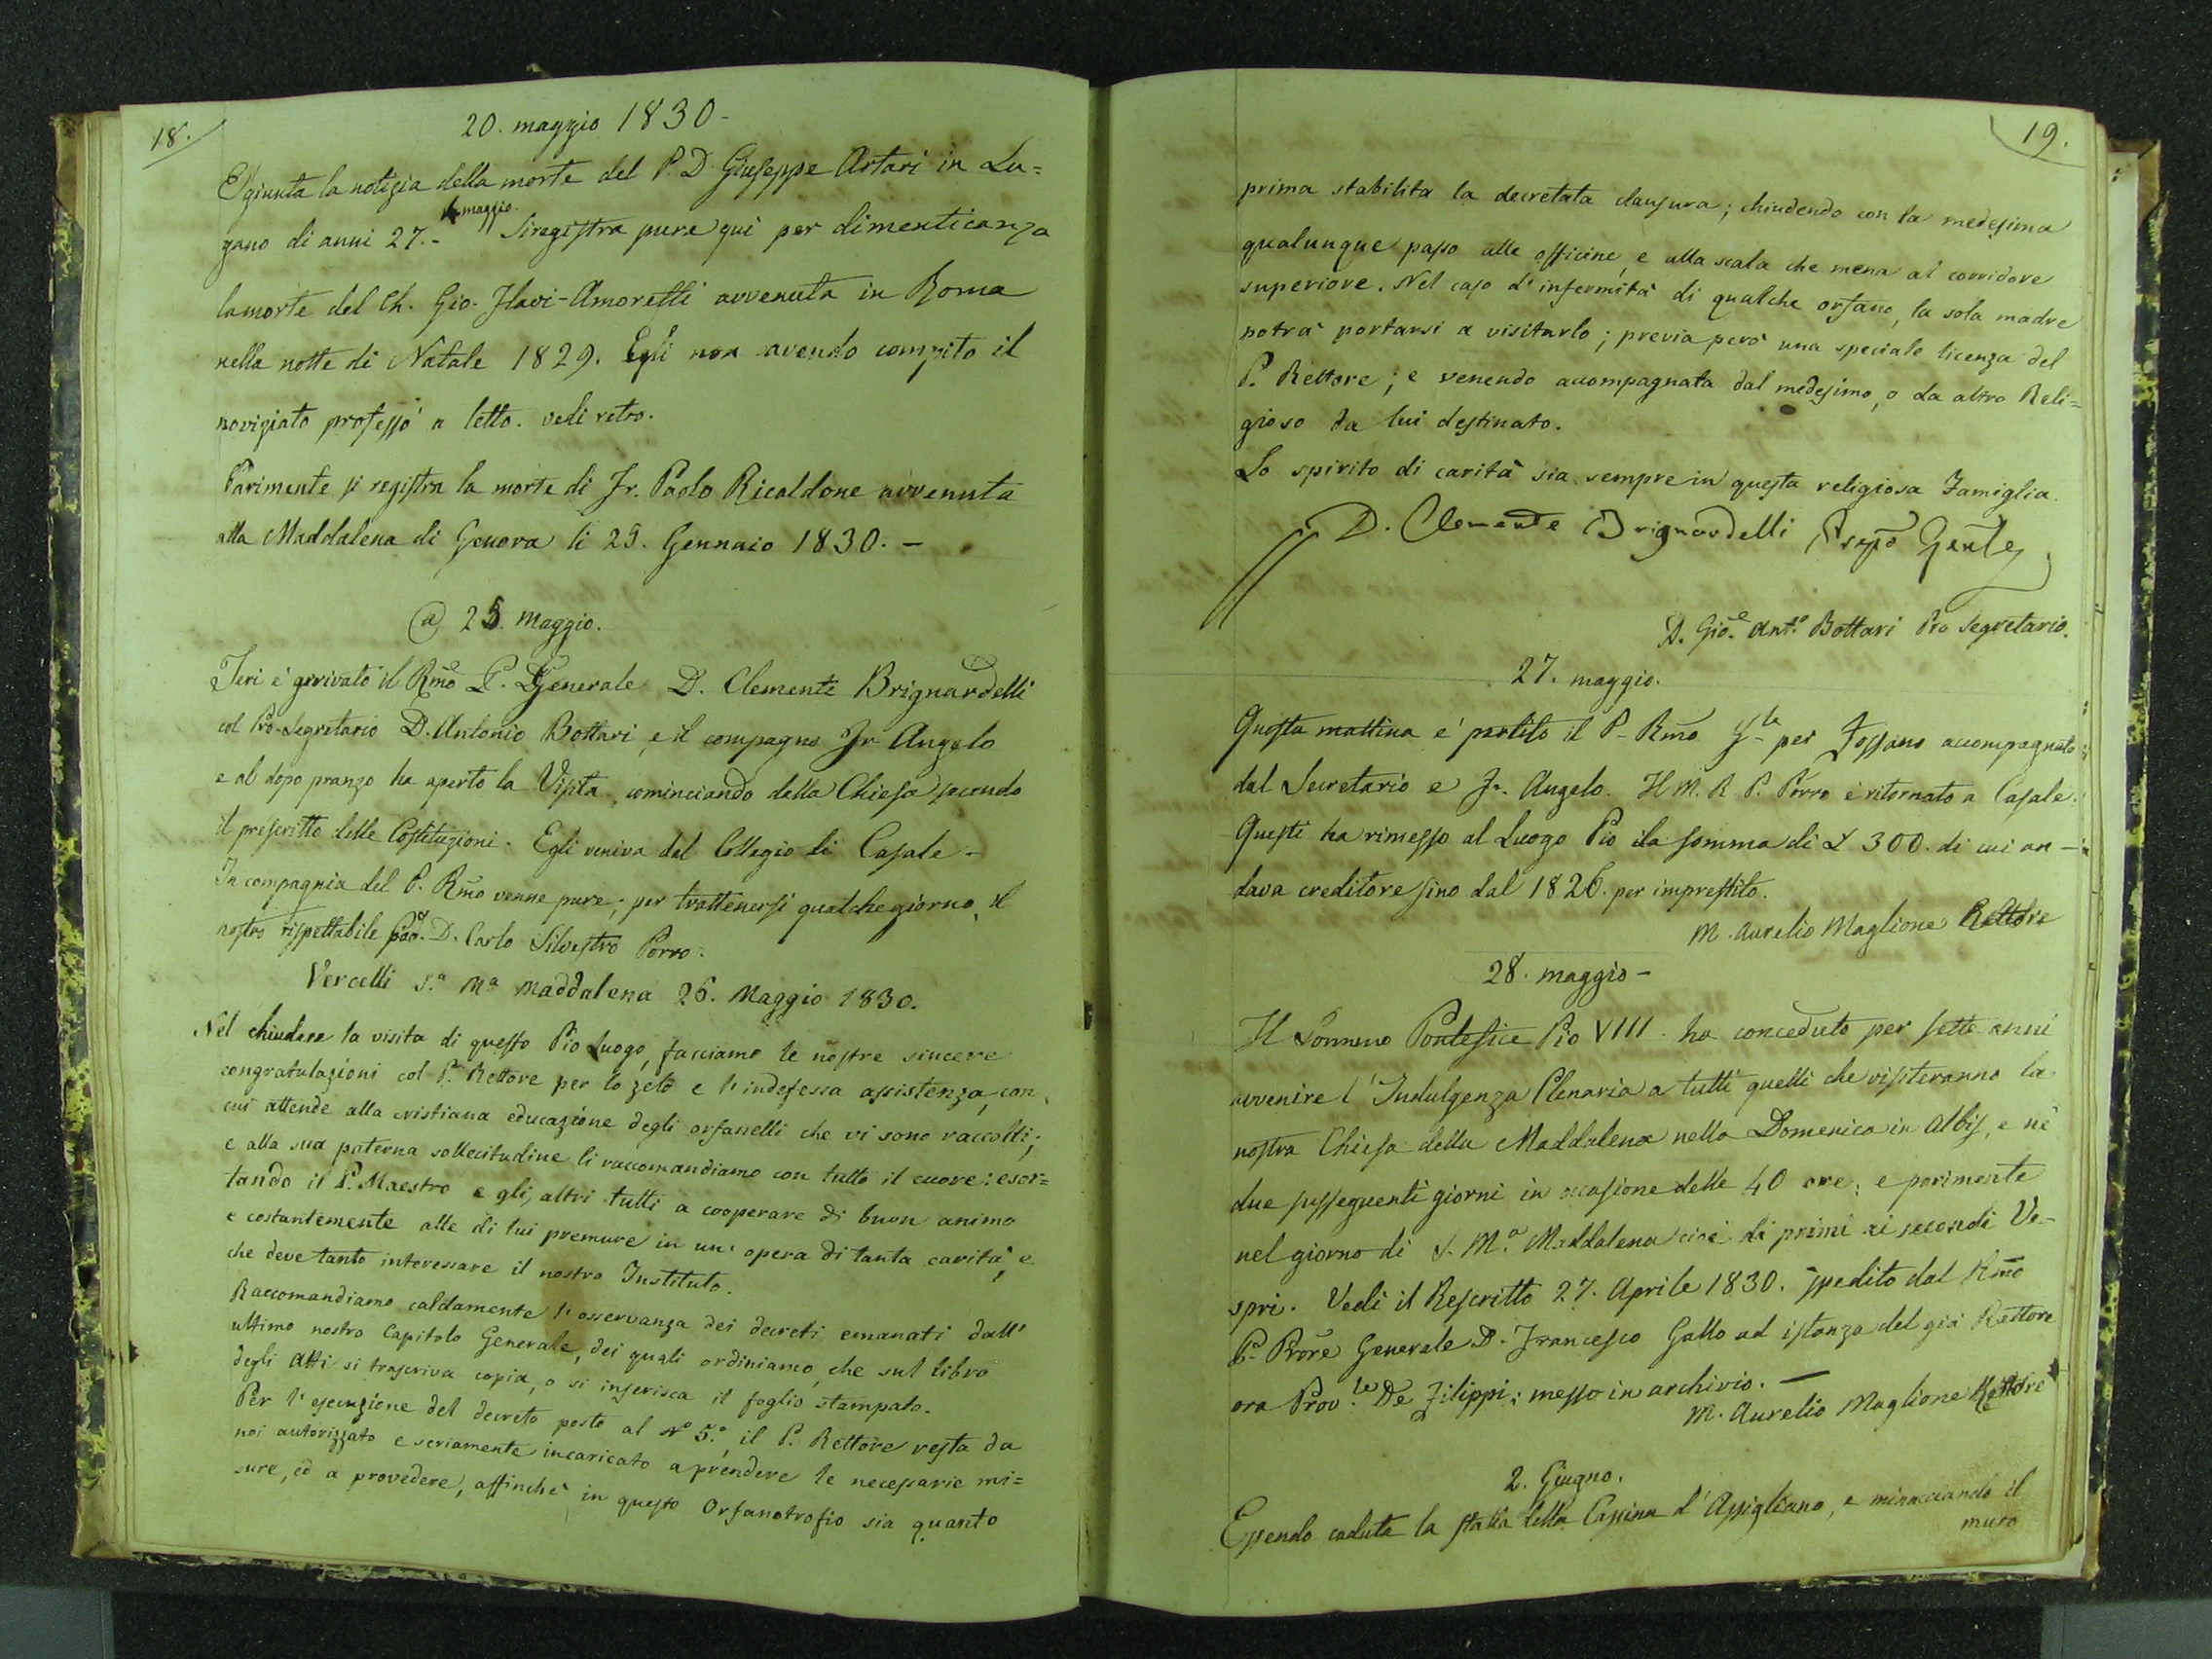 18.
20. maggio 1830-
E' giunta la notizia della morte del P. D. Giuseppe Artari in Lu=
4 maggio.
gano di anni 27.- Si registra pure qui per dimenticanza
la morte del Ch. Gio. Amoretti avvenuta in Roma
nella notte di Natale 1829. Egli non avendo compito il
noviziato professò a letto. vedi retro.
Parimente si registra la morte di Fr. Paolo Ricaldone avvenuta
alla Maddalena di Genova li 29. Gennaio 1830. -
25. Maggio.
Jeri è arrivato il Rmo P. Generale D. Clemente Brignardelli
col Pro-Segretario D. Antonio Bottari, e il compagno Fr Angelo
e al dopo pranzo ha aperto la Visita, cominciando dalla Chiesa secondo
il prescritto delle Costituzioni. Egli veniva dal Collegio di Casale -
In compagnia del P. Rmo venne pure, per trattenersi qualche giorno, il
nostro rispettabile D. Carlo Silvestro Porro.
Vercelli S.a Ma Maddalena 26. Maggio 1830.
Nel chiudere la visita di questo Pio Luogo, facciamo le nostre sincere
congratulazioni col P. Rettore per lo zelo e l'indefessa assistenza, con
cui attende alla cristiana educazione degli orfanelli che vi sono raccolti;
e alla sua paterna sollecitudine li raccomandiamo con tutto il cuore: esor=
tando il P. Maestro e gli altri tutti a cooperare di buon animo
e costantemente alle di lui premure in un' opera di tanta carità, e
che deve tanto interessare il nostro Instituto.
Raccomandiamo caldamente l'osservanza dei decreti emanati dall'
ultimo nostro Capitolo Generale, dei quali ordiniamo, che sul libro
degli Atti si trascriva copia, o si inserisca il foglio stampato.
Per l'esecuzione del decreto posto al No 5.o, il P. Rettore resta da
noi autorizzato e seriamente incaricato a prendere le necessarie mi=
sure, ed a provedere, affinchè in questo Orfanotrofio sia quanto
19.
prima stabilita la decretata clausura; chiudendo con la medesima
qualunque passo alle officine, e alla scala che mena al corridore
superiore. Nel caso d'infermità di qualche orfano, la sola madre
potrà portarsi a visitarlo; previa però una speciale licenza del
P. Rettore; e venendo accompagnata dal medesimo, o da altro Reli=
gioso da lui destinato.
Lo spirito di carità sia sempre in questa religiosa Famiglia.
D. Clemente Brignardelli Prepo Genle
D. Gio.e Ant.o Bottari Pro Segretario.
27. maggio.
Questa mattina è partito il P. Rmo Gle per Fossano accompagnato
dal Secretario e Fr. Angelo. Il M. R. P. Porro è ritornato a Casale.
Questi ha rimesso al Luogo Pio la somma di L 300. di cui an-
dava creditore sino dal 1826. per imprestito.
M. Aurelio Maglione Rettore
28. maggio -
Il Sommo Pontefice Pio VIII. ha conceduto per sette anni
avvenire l'Indulgenza Plenaria a tutti quelli che visiteranno la
nostra Chiesa della Maddalena nella Domenica in Albis, e nè
due susseguenti giorni in occasione delle 40 ore; e parimente
nel giorno di S. M.a Maddalena cioè dai primi ai secondi Ve-
spri. Vedi il Rescritto 27. Aprile 1830. spedito dal Rmo
P. Prore Generale D. Francesco Gallo ad istanza del già Rettore
ora Prov.le De Filippi; messo in archivio. -
M. Aurelio Maglione Rettore
2. Giugno.
Essendo caduta la stalla della Cassina d'Assigliano, e minacciando il
muro